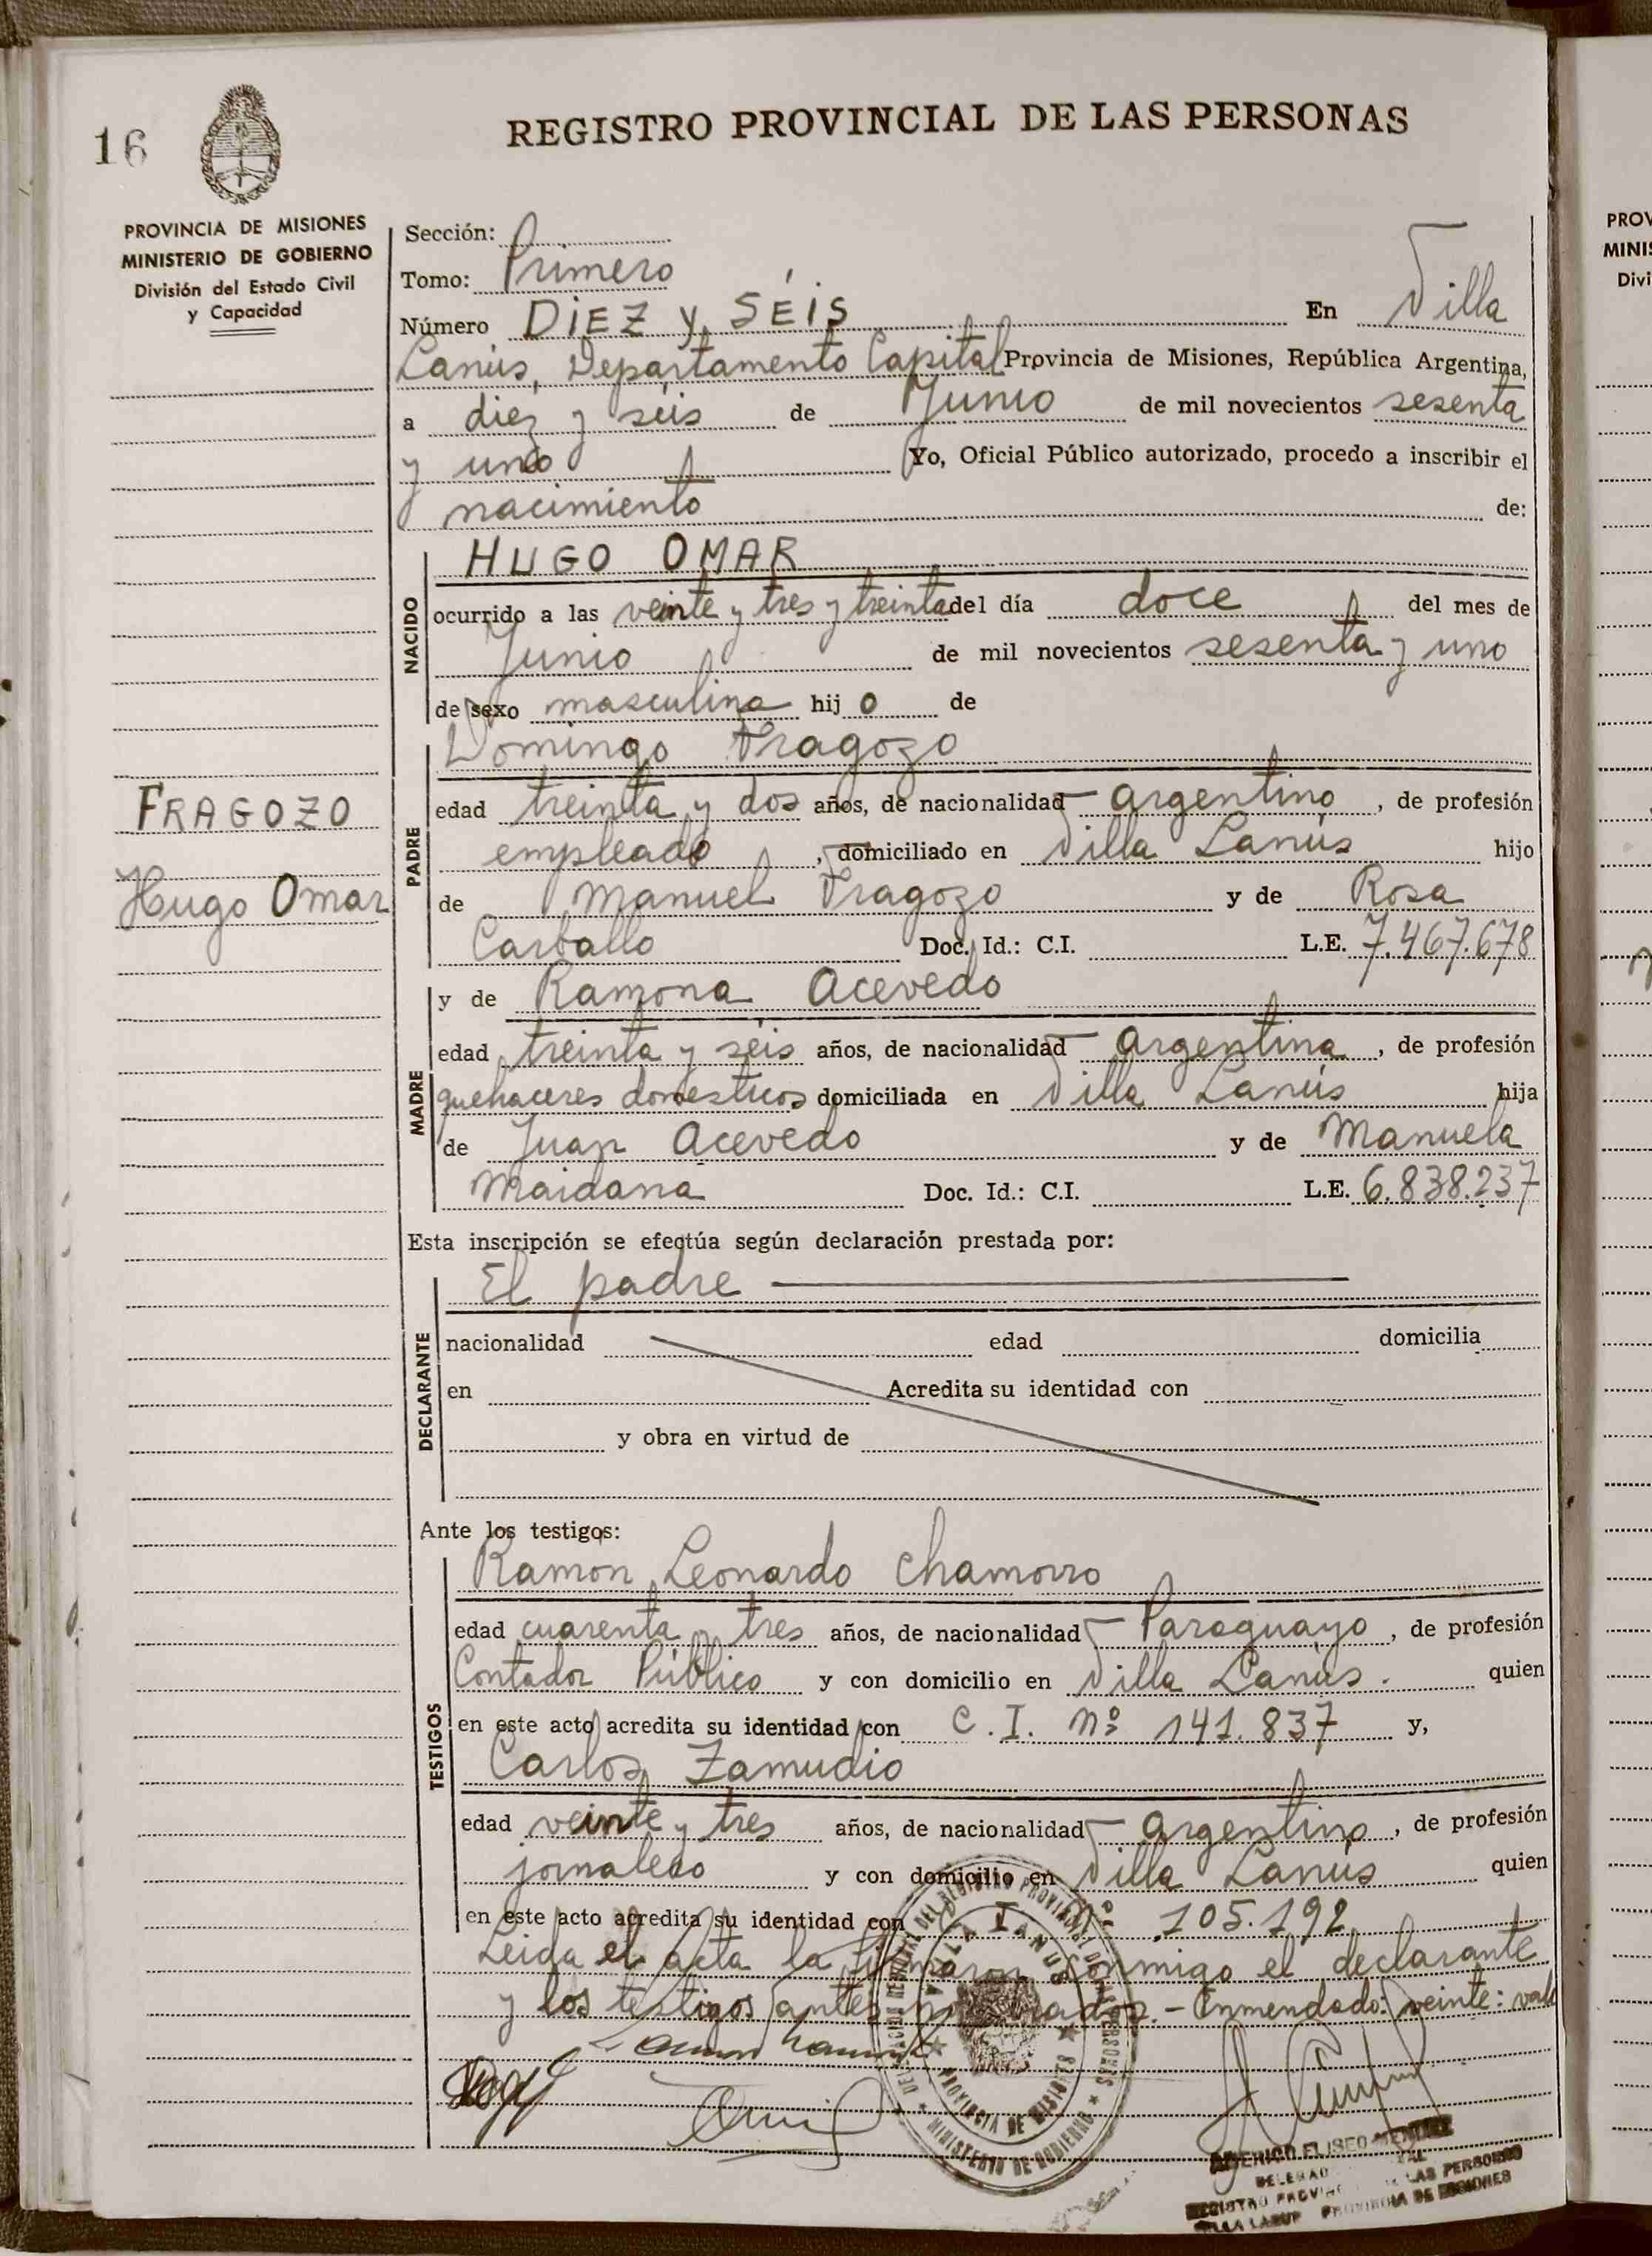 16
REGISTRO PROVINCIAL DE LAS PERSONAS
PROVINCIA DE MISIONES
MINISTERIO DE GOBIERNO
División del Estado Civil
y Capacidad
Sección:
Tomo: Primero
Número DIEZ Y SÉIS En Villa
Lanús, Departamento Capital Provincia de Misiones, República Argentina,
a diez y séis de Junio de mil novecientos sesenta
y uno Yo, Oficial Público autorizado, procedo a inscribir el
nacimiento de:
NACIDO
HUGO OMAR
ocurrido a las veinte y tres y treinta del día doce del mes de
Junio de mil novecientos sesenta y uno
de sexo masculino hijo de
Domingo Fragozo
FRAGOZO
Hugo Omar
PADRE
edad treinta y dos años, de nacionalidad argentino, de profesión
empleado, domiciliado en Villa Lanús hijo
de Manuel Fragozo y de Rosa
Carballo Doc. Id.: C.I. L.E. 7.467.678
MADRE
y de Ramona Acevedo
edad treinta y séis años, de nacionalidad argentina, de profesión
quehaceres domesticos domiciliada en Villa Lanús hija
de Juan Acevedo y de Manuela
Maidana Doc. Id.: C.I. L.E. 6.838.237
Esta inscripción se efectúa según declaración prestada por:
DECLARANTE
El padre
nacionalidad edad domicilia
en Acredita su identidad con
y obra en virtud de
Ante los testigos:
TESTIGOS
Ramon Leonardo Chamorro
edad cuarenta y tres años, de nacionalidad Paraguayo, de profesión
Contador Público y con domicilio en Villa Lanús. quien
en este acto acredita su identidad con C.I. Nº 141.837 y,
Carlos Zamudio
edad veinte y tres años, de nacionalidad argentino, de profesión
jornalero y con domicilio en Villa Lanús quien
en este acto acredita su identidad con C. I. 105.192
Leida el acta la firmaron conmigo el declarante
y los testigos antes nombrados.- Enmendado: veinte: vale
VILLA LANUS
PROVINCIA DE MISIONES
MINISTERIO DE GOBIERNO
AMERICO ELISEO MENDEZ
REGISTRO LAS PERSONAS
VILLA LANUS PROVINCIA DE MISIONES
PROV
MINIS
Divi